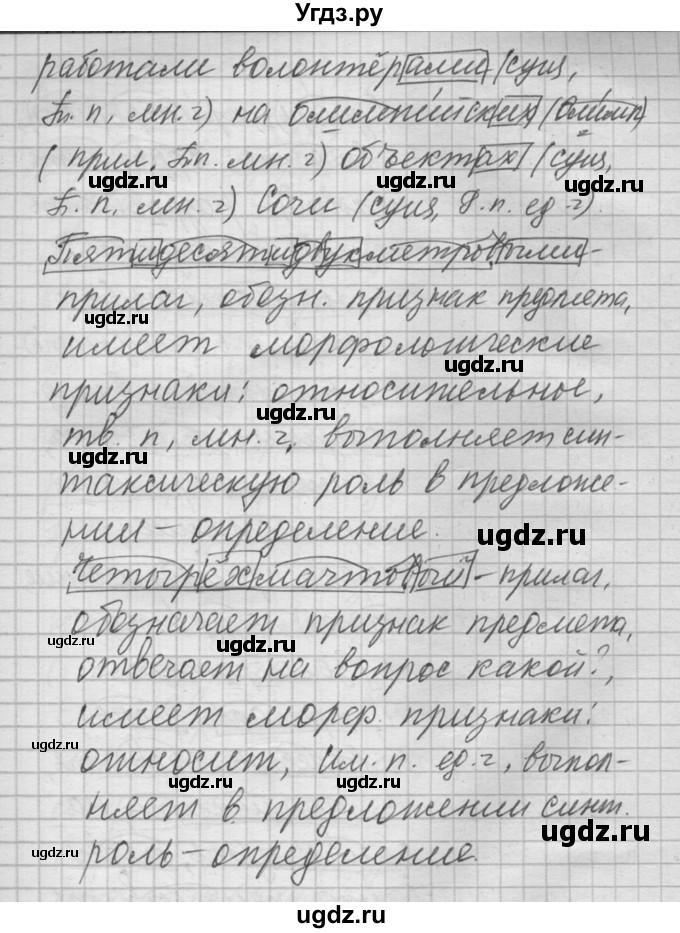 Угдз.ру
работали волонтёрами (сущ,
п, мн. ч) на олимпийских (Олимп)
(прил, п. мн. ч) объектах (сущ,
ugdz.ru ugdz.ru
п, мн. ч) Сочи (сущ, п. ед. ч).
Пятидесятидвухметровыми-
прилаг, обозн. признак предмета,
ugdz.ru
имеет морфологические
ugdz.ru
признаки: относительное,
ugdz.ru
тв. п, мн. ч, выполняет син-
ugdz.ru
таксическую роль в предложе-
нии - определение.
ugdz.ru
Четырёхмачтовый - прилаг,
обозначает признак предмета,
ugdz.ru ugdz.ru
отвечает на вопрос какой?,
имеет морф. признаки:
ugdz.ru
относит, Им. п. ед. ч, выпол-
ugdz.ru
няет в предложении синт.
ugdz.ru
роль - определение.
ugdz.ru
ugdz.ru